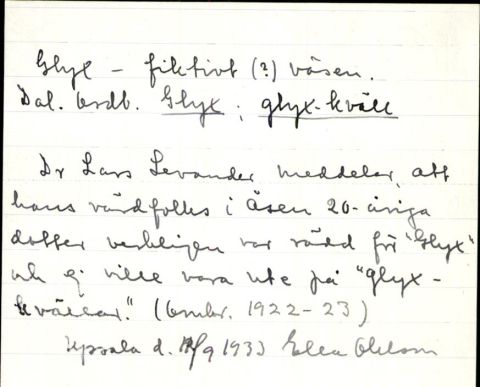 Glyx – fiktivt (?) väsen.
Dal. Ordb. Glyx; glyx-kväll
Dr Lars Levander meddelar, att
hans värdfolks i Åsen 20-åriga
dotter verkligen var rädd för "Glyx"
och ej ville vara ute på "glyx-
kvällar." (Omkr. 1922–23)
Uppsala d. /9 1933 Ella Ohlson